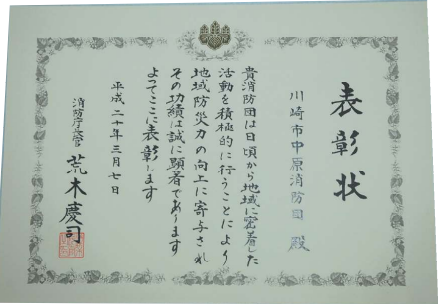 表彰状
川崎市中原消防団 殿
貴消防団は日頃から地域に密着した
活動を積極的に行うことにより
地域防災力の向上に寄与され
その功績は誠に顕著であります
よってここに表彰します
平成二十年三月七日
消防庁長官 荒木慶司